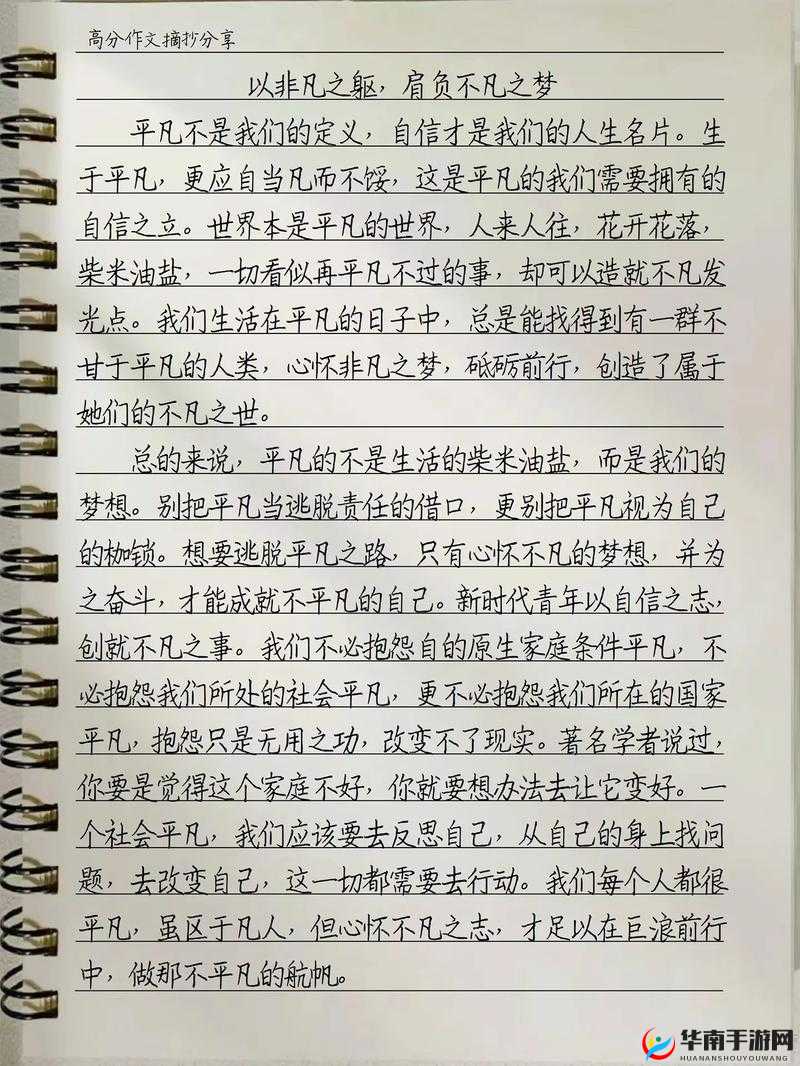 高分作文摘抄分享
以非凡之躯，肩负不凡之梦
平凡不是我们的定义，自信才是我们的人生名片。生
于平凡，更应自当凡而不馁，这是平凡的我们需要拥有的
自信之立。世界本是平凡的世界，人来人往，花开花落，
柴米油盐，一切看似再平凡不过的事，却可以造就不凡发
光点。我们生活在平凡的日子中，总是能找得到有一群不
甘于平凡的人类，心怀非凡之梦，砥砺前行，创造了属于
她们的不凡之世。
总的来说，平凡的不是生活的柴米油盐，而是我们的
梦想。别把平凡当逃脱责任的借口，更别把平凡视为自己
的枷锁。想要逃脱平凡之路，只有心怀不凡的梦想，并为
之奋斗，才能成就不平凡的自己。新时代青年以自信之志，
创就不凡之事。我们不必抱怨自的原生家庭条件平凡，不
必抱怨我们所处的社会平凡，更不必抱怨我们所在的国家
平凡，抱怨只是无用之功，改变不了现实。著名学者说过，
你要是觉得这个家庭不好，你就要想办法去让它变好。一
个社会平凡，我们应该要去反思自己，从自己的身上找问
题，去改变自己，这一切都需要去行动。我们每个人都很
平凡，虽区于凡人，但心怀不凡之志，才足以在巨浪前行
中，做那不平凡的航帆。
华南手游网
HUANANSHOUYOUWANG